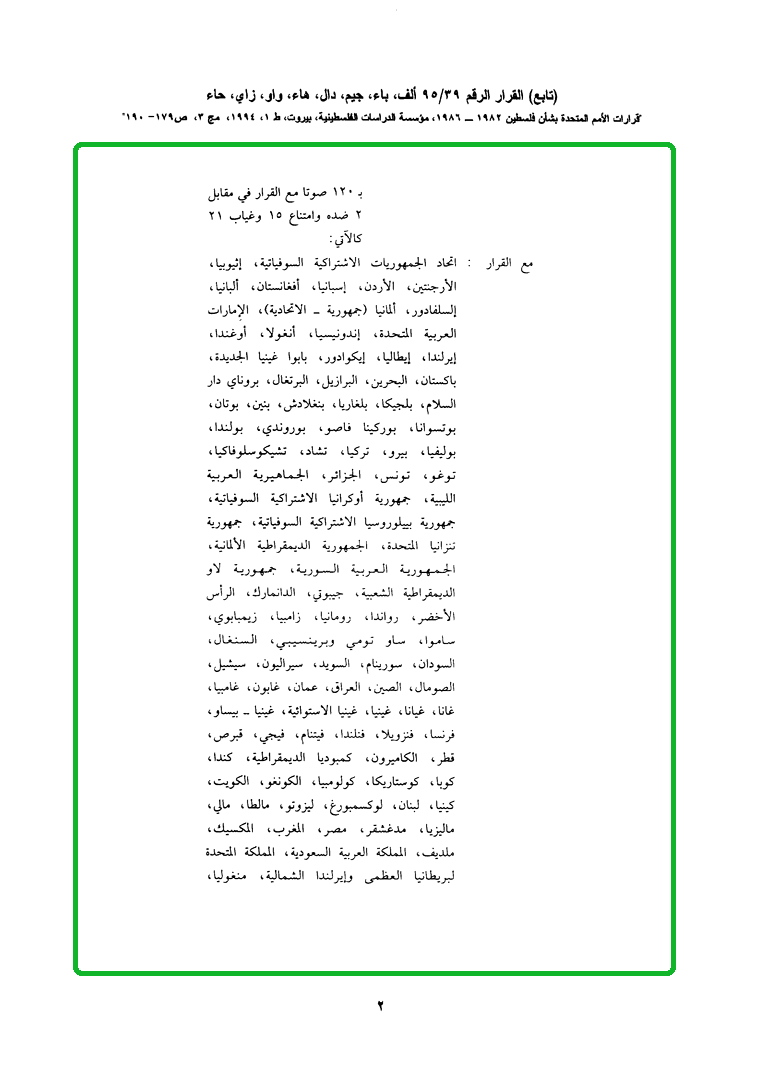 (تابع) القرار الرقم ٩٥/٣٩ ألف، باء، جيم، دال، هاء، واو، زاي، حاء
"قرارات الأمم المتحدة بشأن فلسطين ١٩٨٢ ــ ١٩٨٦، مؤسسة الدراسات الفلسطينية، بيروت، ط ١، ١٩٩٤، مج ٣، ص١٧٩- ١٩٠"
بـ ١٢٠ صوتا مع القرار في مقابل
٢ ضده وامتناع ١٥ وغياب ٢١
كالآتي:
مع القرار : اتحاد الجمهوريات الاشتراكية السوفياتية، إثيوبيا،
الأرجنتين، الأردن، إسبانيا، أفغانستان، ألبانيا،
إلسلفادور، ألمانيا (جمهورية ــ الاتحادية)، الإمارات
العربية المتحدة، إندونيسيا، أنغولا، أوغندا،
إيرلندا، إيطاليا، إيكوادور، بابوا غينيا الجديدة،
باكستان، البحرين، البرازيل، البرتغال، بروناي دار
السلام، بلجيكا، بلغاريا، بنغلادش، بنين، بوتان،
بوتسوانا، بوركينا فاصو، بوروندي، بولندا،
بوليفيا، بيرو، تركيا، تشاد، تشيكوسلوفاكيا،
توغو، تونس، الجزائر، الجماهيرية العربية
الليبية، جمهورية أوكرانيا الاشتراكية السوفياتية،
جمهورية بييلوروسيا الاشتراكية السوفياتية، جمهورية
تنزانيا المتحدة، الجمهورية الديمقراطية الألمانية،
الجمهورية العربية السورية، جمهورية لاو
الديمقراطية الشعبية، جيبوتي، الدانمارك، الرأس
الأخضر، رواندا، رومانيا، زامبيا، زيمبابوي،
ساموا، ساو تومي وبرينسيبي، السنغال،
السودان، سورينام، السويد، سيراليون، سيشيل،
الصومال، الصين، العراق، عمان، غابون، غامبيا،
غانا، غيانا، غينيا، غينيا الاستوائية، غينيا ــ بيساو،
فرنسا، فنزويلا، فنلندا، فيتنام، فيجي، قبرص،
قطر، الكاميرون، كمبوديا الديمقراطية، كندا،
كوبا، كوستاريكا، كولومبيا، الكونغو، الكويت،
كينيا، لبنان، لوكسمبورغ، ليزوتو، مالطا، مالي،
ماليزيا، مدغشقر، مصر، المغرب، المكسيك،
ملديف، المملكة العربية السعودية، المملكة المتحدة
لبريطانيا العظمى وإيرلندا الشمالية، منغوليا،
٢